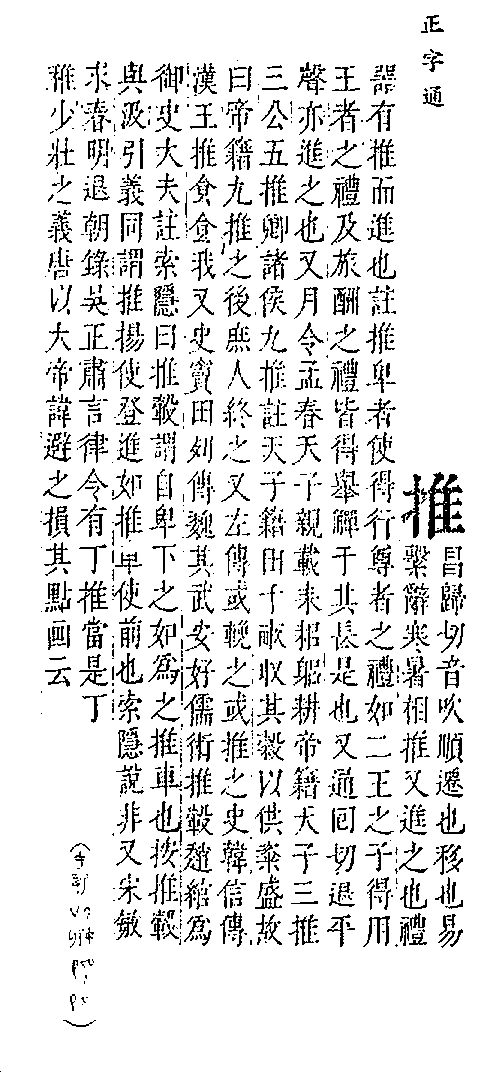 正字通
推
昌歸切音吹順遷也移也易
繫辭寒暑相推又進之也禮
器有推而進也註推卑者使得行尊者之禮如二王之子得用
王者之禮及旅酬之禮皆得舉觶于其長是也又通回切退平
聲亦進之也又月令孟春天子親載耒耜躬耕帝籍天子三推
三公五推卿諸侯九推註天子籍田千畝收其穀以供粢盛故
曰帝籍九推之後庶人終之又左傳或輓之或推之史韓信傳
漢王推食食我又史竇田列傳魏其武安好儒術推轂趙綰爲
御史大夫註索隱曰推轂謂自卑下之如爲之推車也按推轂
與汲引義同謂推揚使登進如推車使前也索隱說非又宋敏
求春明退朝錄吳正肅言律令有丁推當是丁
稚少壯之義唐以大帝諱避之損其點画云